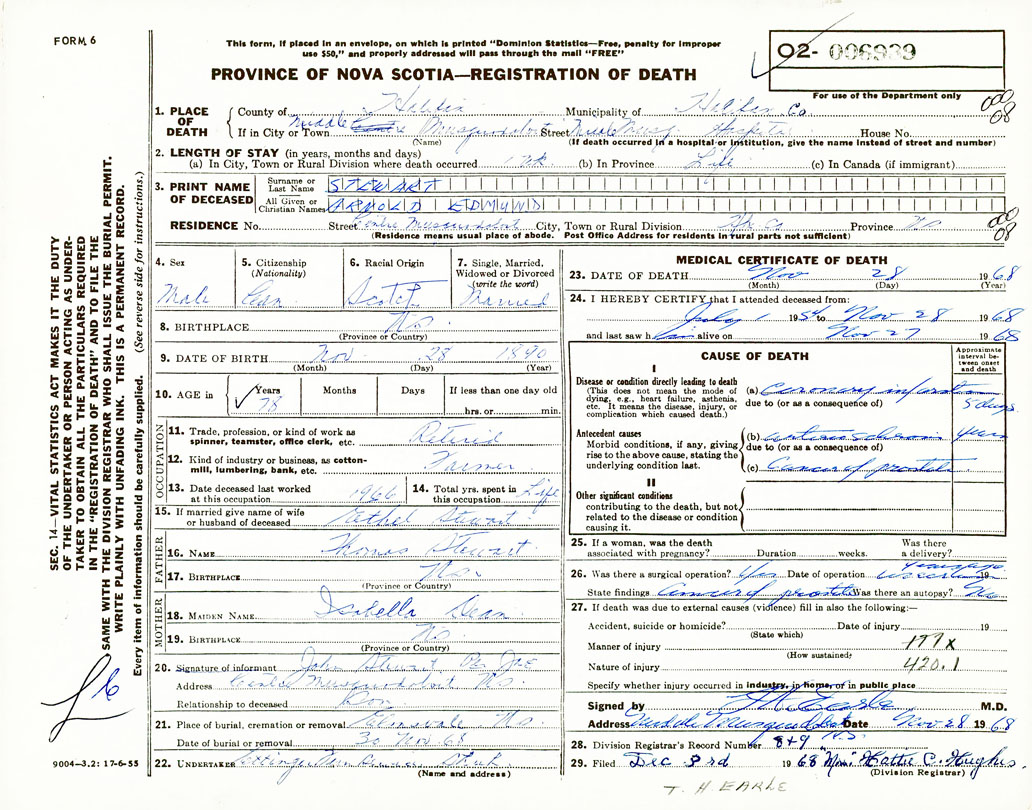 FORM 6
This form, if placed in an envelope, on which is printed "Dominion Statistics—Free, penalty for improper
use $50," and properly addressed will pass through the mail "FREE"
PROVINCE OF NOVA SCOTIA—REGISTRATION OF DEATH
O2- 006939
For use of the Department only
1. PLACE OF DEATH County of Halifax Municipality of Halifax Co.
If in City or Town Middle Musquodoboit Street Middle Musq. Hospital House No.
(Name) (If death occurred in a hospital or institution, give the name instead of street and number)
2. LENGTH OF STAY (in years, months and days)
(a) In City, Town or Rural Division where death occurred 1 wk (b) In Province Life (c) In Canada (if immigrant)
3. PRINT NAME OF DECEASED Surname or Last Name STEWART
All Given or Christian Names ARNOLD EDMUND
RESIDENCE No. Street Centre Musquodoboit City, Town or Rural Division Hfx Co Province NS
(Residence means usual place of abode. Post Office Address for residents in rural parts not sufficient)
008
008
4. Sex Male
5. Citizenship (Nationality) Can.
6. Racial Origin Scotch
7. Single, Married, Widowed or Divorced (write the word) Married
8. BIRTHPLACE N.S.
(Province or Country)
9. DATE OF BIRTH Nov. 28 1890
(Month) (Day) (Year)
10. AGE in Years 78 Months Days If less than one day old
hrs. or min.
OCCUPATION
11. Trade, profession, or kind of work as spinner, teamster, office clerk, etc. Retired
12. Kind of industry or business, as cotton-mill, lumbering, bank, etc. Farmer
13. Date deceased last worked at this occupation 1966 14. Total yrs. spent in this occupation Life
15. If married give name of wife or husband of deceased Ethel Stewart
FATHER
16. NAME Thomas Stewart
17. BIRTHPLACE N.S.
(Province or Country)
MOTHER
18. MAIDEN NAME Isabella Dean
19. BIRTHPLACE N.S.
(Province or Country)
20. Signature of informant John Stewart Per
Address Centre Musquodoboit N.S.
Relationship to deceased Son
21. Place of burial, cremation or removal N.S.
Date of burial or removal 30 Nov. 68
22. UNDERTAKER
(Name and address)
MEDICAL CERTIFICATE OF DEATH
23. DATE OF DEATH Nov 28 1968
(Month) (Day) (Year)
24. I HEREBY CERTIFY that I attended deceased from:
July 1 1954 to Nov 28 1968
and last saw him alive on Nov 27 1968
CAUSE OF DEATH
Approximate interval between onset and death
I
Disease or condition directly leading to death
(This does not mean the mode of dying, e.g., heart failure, asthenia, etc. It means the disease, injury, or complication which caused death.)
(a) Coronary infarction 5 days
due to (or as a consequence of)
Antecedent causes
Morbid conditions, if any, giving rise to the above cause, stating the underlying condition last.
(b) arteriosclerosis years
due to (or as a consequence of)
(c) Cancer of prostate
II
Other significant conditions
contributing to the death, but not related to the disease or condition causing it.
25. If a woman, was the death associated with pregnancy? Duration weeks. Was there a delivery?
26. Was there a surgical operation? Yes Date of operation years ago 19
State findings Cancer of prostate Was there an autopsy? No
27. If death was due to external causes (violence) fill in also the following:—
Accident, suicide or homicide? Date of injury 19
(State which)
Manner of injury 177X
(How sustained)
Nature of injury 420.1
Specify whether injury occurred in industry, in home, or in public place
Signed by T H Earle M.D.
Address Middle Musquodoboit N.S. Date Nov 28 1968
28. Division Registrar's Record Number 849
29. Filed Dec 3rd 1968 Mrs Hattie C. Hughes.
(Division Registrar)
T. H. EARLE
9004—3.2: 17-6-55
SEC. 14—VITAL STATISTICS ACT MAKES IT THE DUTY
OF THE UNDERTAKER OR PERSON ACTING AS UNDER-
TAKER TO OBTAIN ALL THE PARTICULARS REQUIRED
IN THE "REGISTRATION OF DEATH" AND TO FILE THE
SAME WITH THE DIVISION REGISTRAR WHO SHALL ISSUE THE BURIAL PERMIT.
WRITE PLAINLY WITH UNFADING INK. THIS IS A PERMANENT RECORD.
Every item of information should be carefully supplied. (See reverse side for instructions.)